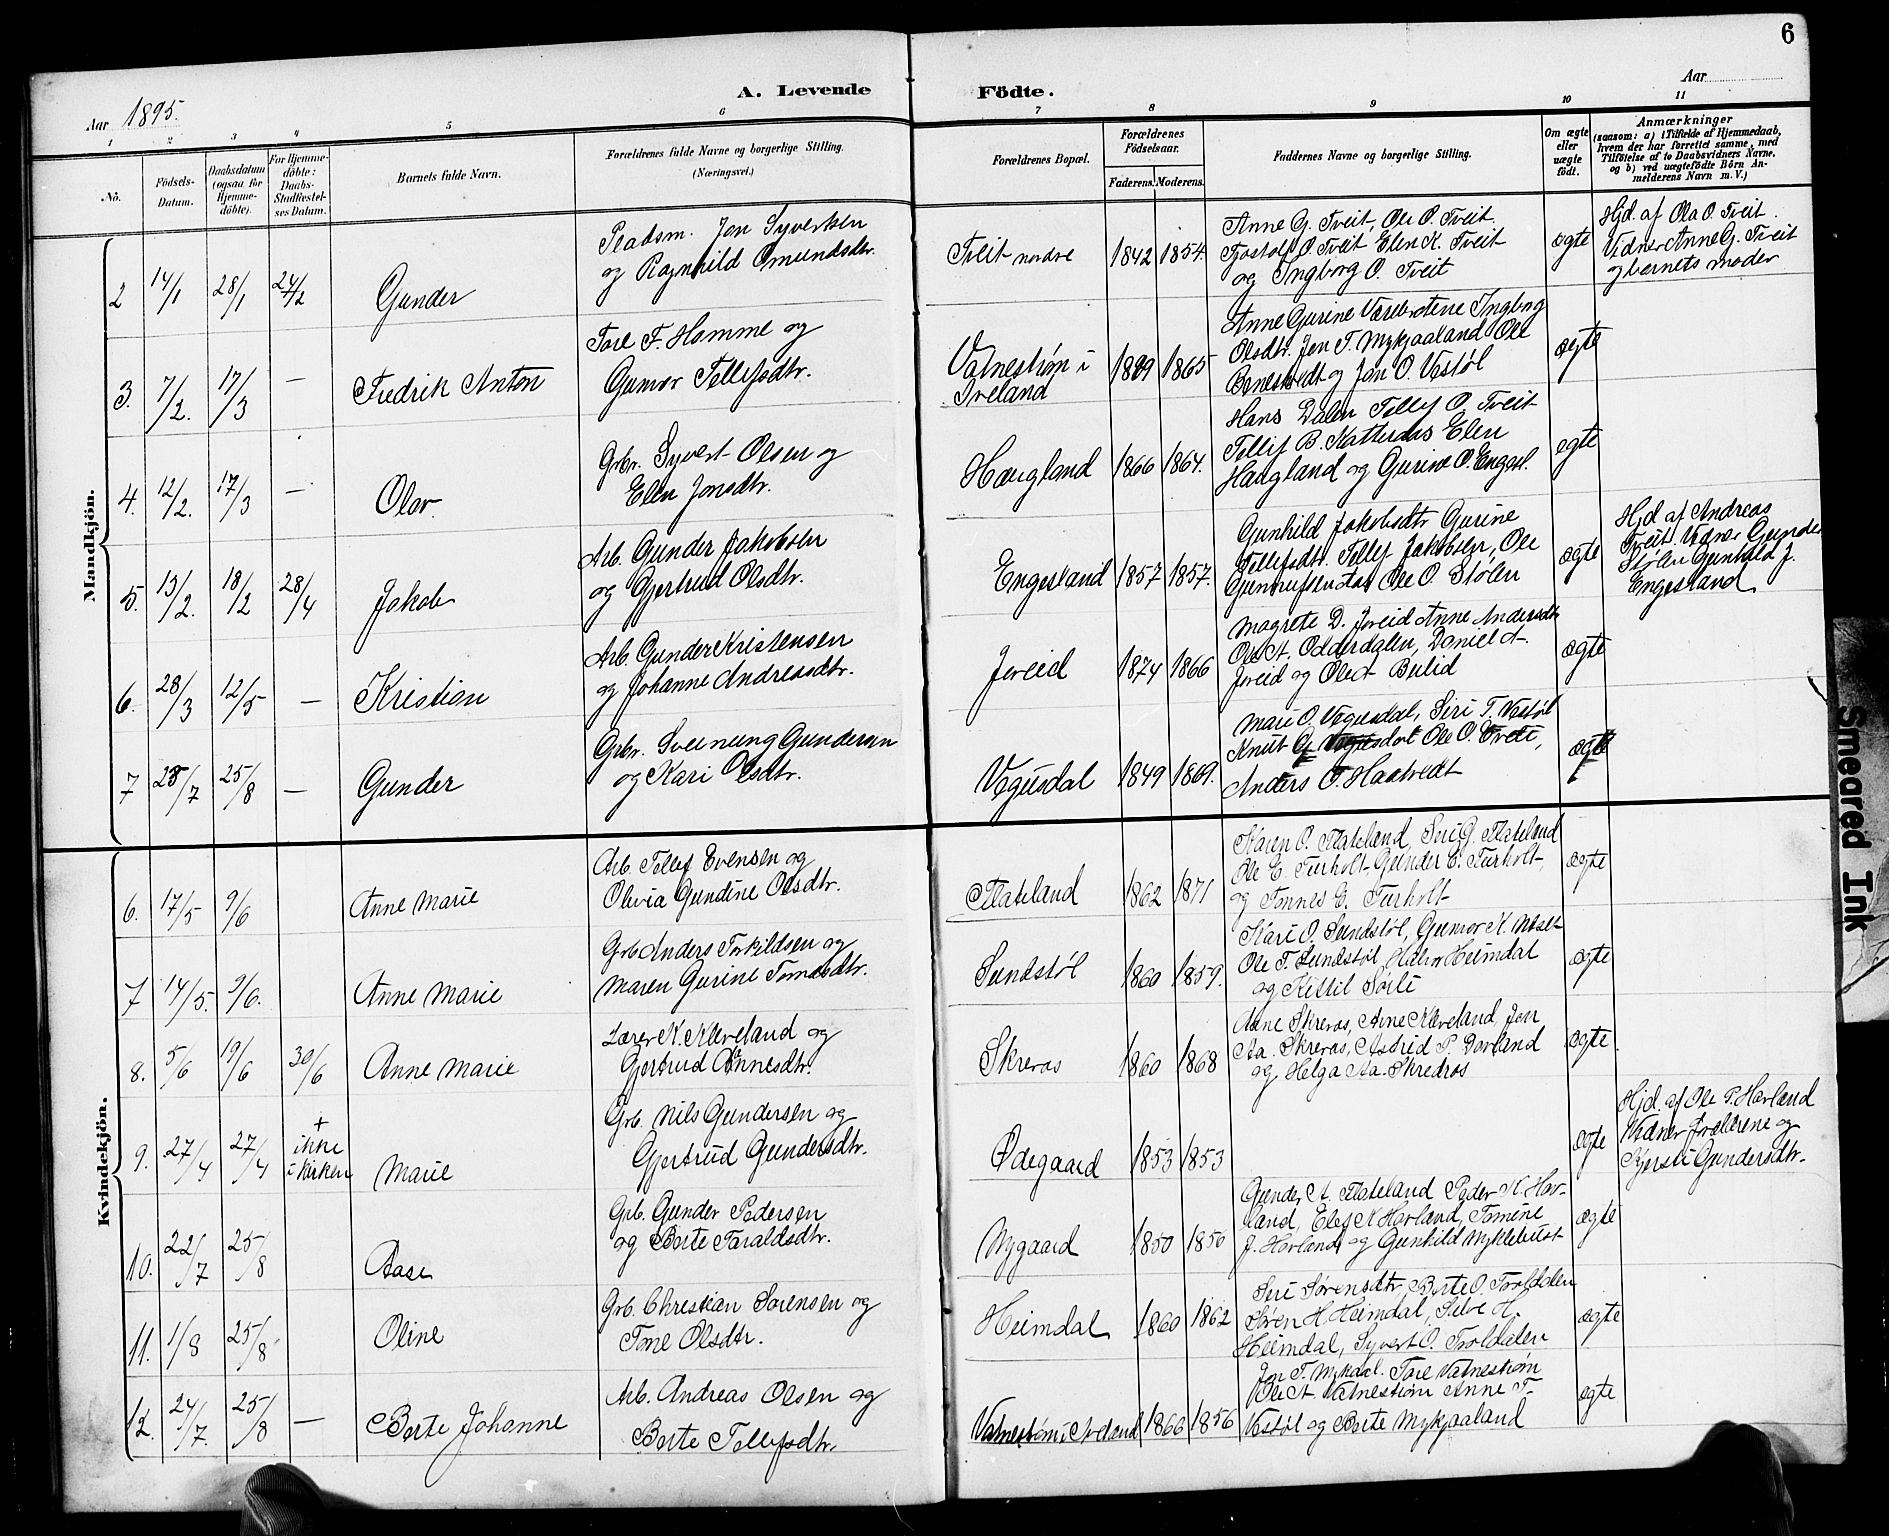 6
Aar 1895.
A. Levende Födte.
Aar
1 2 3 4 5 6 7 8 9 10 11
No.
Födsels-Datum.
Daabsdatum (ogsaa for Hjemme-döbte).
For Hjemme-döbte: Daabs-Stadfæstel-ses Datum.
Barnets fulde Navn.
Forældrenes fulde Navne og borgerlige Stilling.
(Næringsvei.)
Forældrenes Bopæl.
Forældrenes Födselsaar.
Faderens. Moderens.
Faddernes Navne og borgerlige Stilling.
Om ægte eller uægte födt.
Anmærkninger
(saasom: a) i Tilfælde af Hjemmedaab, hvem der har forrettet samme, med Tilföielse af to Daabsvidners Navne, og b) ved uægtefödte Börn An-melderens Navn m. V.)
Mandkjön.
2 14/1 28/1 24/2 Gunder
Pladsm. Jon Syvertsen
og Ragnhild Omundsdtr.
Tveit nordre 1842 1854.
Anne G. Tveit, Ole O. Tveit.
Tjostolf O. Tveit Elen K. Tveit
og Ingborg O. Tveit
ægte
Hjd. af Ola O. Tveit.
Vidner Anne G. Tveit
og barnets moder
3. 7/2. 17/3 — Fredrik Anton
Tore F. Homme og
Gumor Tellefsdtr.
Vatnestrøm i
Iveland
1865
Anne Gurine Ingborg
Olsdtr. Jon T. Mykjaaland Ole
og Jon O. Vestøl
ægte
4. 12/2. 17/3 — Olav
Grbr. Syvert Olsen og
Elen Jonsdtr.
Haugland 1866 1864.
Hans Dalen Tellef O. Tveit
Tellef B. Katteraas Elen
Haugland og Gurine O. Engesl.
ægte
5. 13/2. 18/2 28/4 Jakob
Arb. Gunder Jakobsen
og Gjertrud Olsdtr.
Engesland 1857 1857.
Gunhild Jakobsdtr Gurine
Tellefsdtr. Tellef Jakobsen, Ole
Ole O. Stølen
ægte
Hjd. af Andreas
Tveit. Vidner Gunder
Stølen Gunhild J.
Engesland
6. 28/3 12/5 — Kristian
Arb. Gunder Kristensen
og Johanne Andreasdtr.
Joreid 1874 1866
Magrete D. Joreid Anne Andersdtr
Ole A. Odderdalen, Daniel A.
Joreid og Ole A Beilid
ægte
7 28/7 25/8 — Gunder
Grbr. Sveinung Gundersen
og Kari Olsdtr.
Vegusdal 1849 1869.
Mari O. Vegusdal, Siri T. Vestøl
Knut G Vegusdal Ole O. Tveite,
Anders O. Haatvedt
ægte
Kvindekjön.
6. 17/5 9/6 Anne Marie
Arb. Tellef Evensen og
Olivia Gundine Olsdtr.
Flateland 1862 1871
Karen O. Flateland, Siri G. Flateland
Ole E. Furholt, Gunder E. Furholt,
og Tønnes G. Furholt
ægte
7 14/5. 9/6. Anne Marie
Grb Anders Torkildsen og
Maren Gurine Tomasdtr.
Sundstøl 1860 1859.
Kari O. Sundstøl, Gumor K.
Ole T. Sundstøl, Halvor Heimdal
og Kittil Sørli
ægte
8. 5/6 19/6 30/6 Anne Marie
Lærer K. Kleveland og
Gjertrud Aannesdtr.
Skreros 1860 1868
Anne Skreros, Arne Kleveland, Jon
Aa. Skreros, Astrid P. Dovland
og Helga Aa. Skreros
ægte
9. 27/4 27/4 + ikke
i kirken
Marie
Grb. Nils Gundersen og
Gjertrud Gundersdtr.
Ødegaard 1853 1853
ægte
Hjd. af Ole P. Harland
Vidner forældrene og
Kjersti Gundersdtr.
10. 22/7 25/8 Aase
Grb. Gunder Pedersen
og Berte Taraldsdtr.
Nygaard 1850 1850
Gunder A. Flateland Peder K. Har-
land, Elef K Harland, Tomine
J. Harland og Gunhild Myklebust
ægte
11. 1/8 25/8 Oline
Grb. Christian Sørensen og
Tone Olsdtr.
Heimdal 1860 1862
Siri Sørensdtr, Berte O. Troldalen
Søren H. Heimdal, H.
Heimdal, Syvert O. Troldalen
ægte
12. 24/7. 25/8 — Berte Johanne
Arb. Andreas Olsen og
Berte Tellefsdtr.
Vatnestrøm i Iveland 1866 1856
Jon T. Mykaal. Tore Vatnestrøm
Ole A. Vatnestrøm Anne T.
Vestøl og Berte Mykjaaland
ægte
Smeared Ink